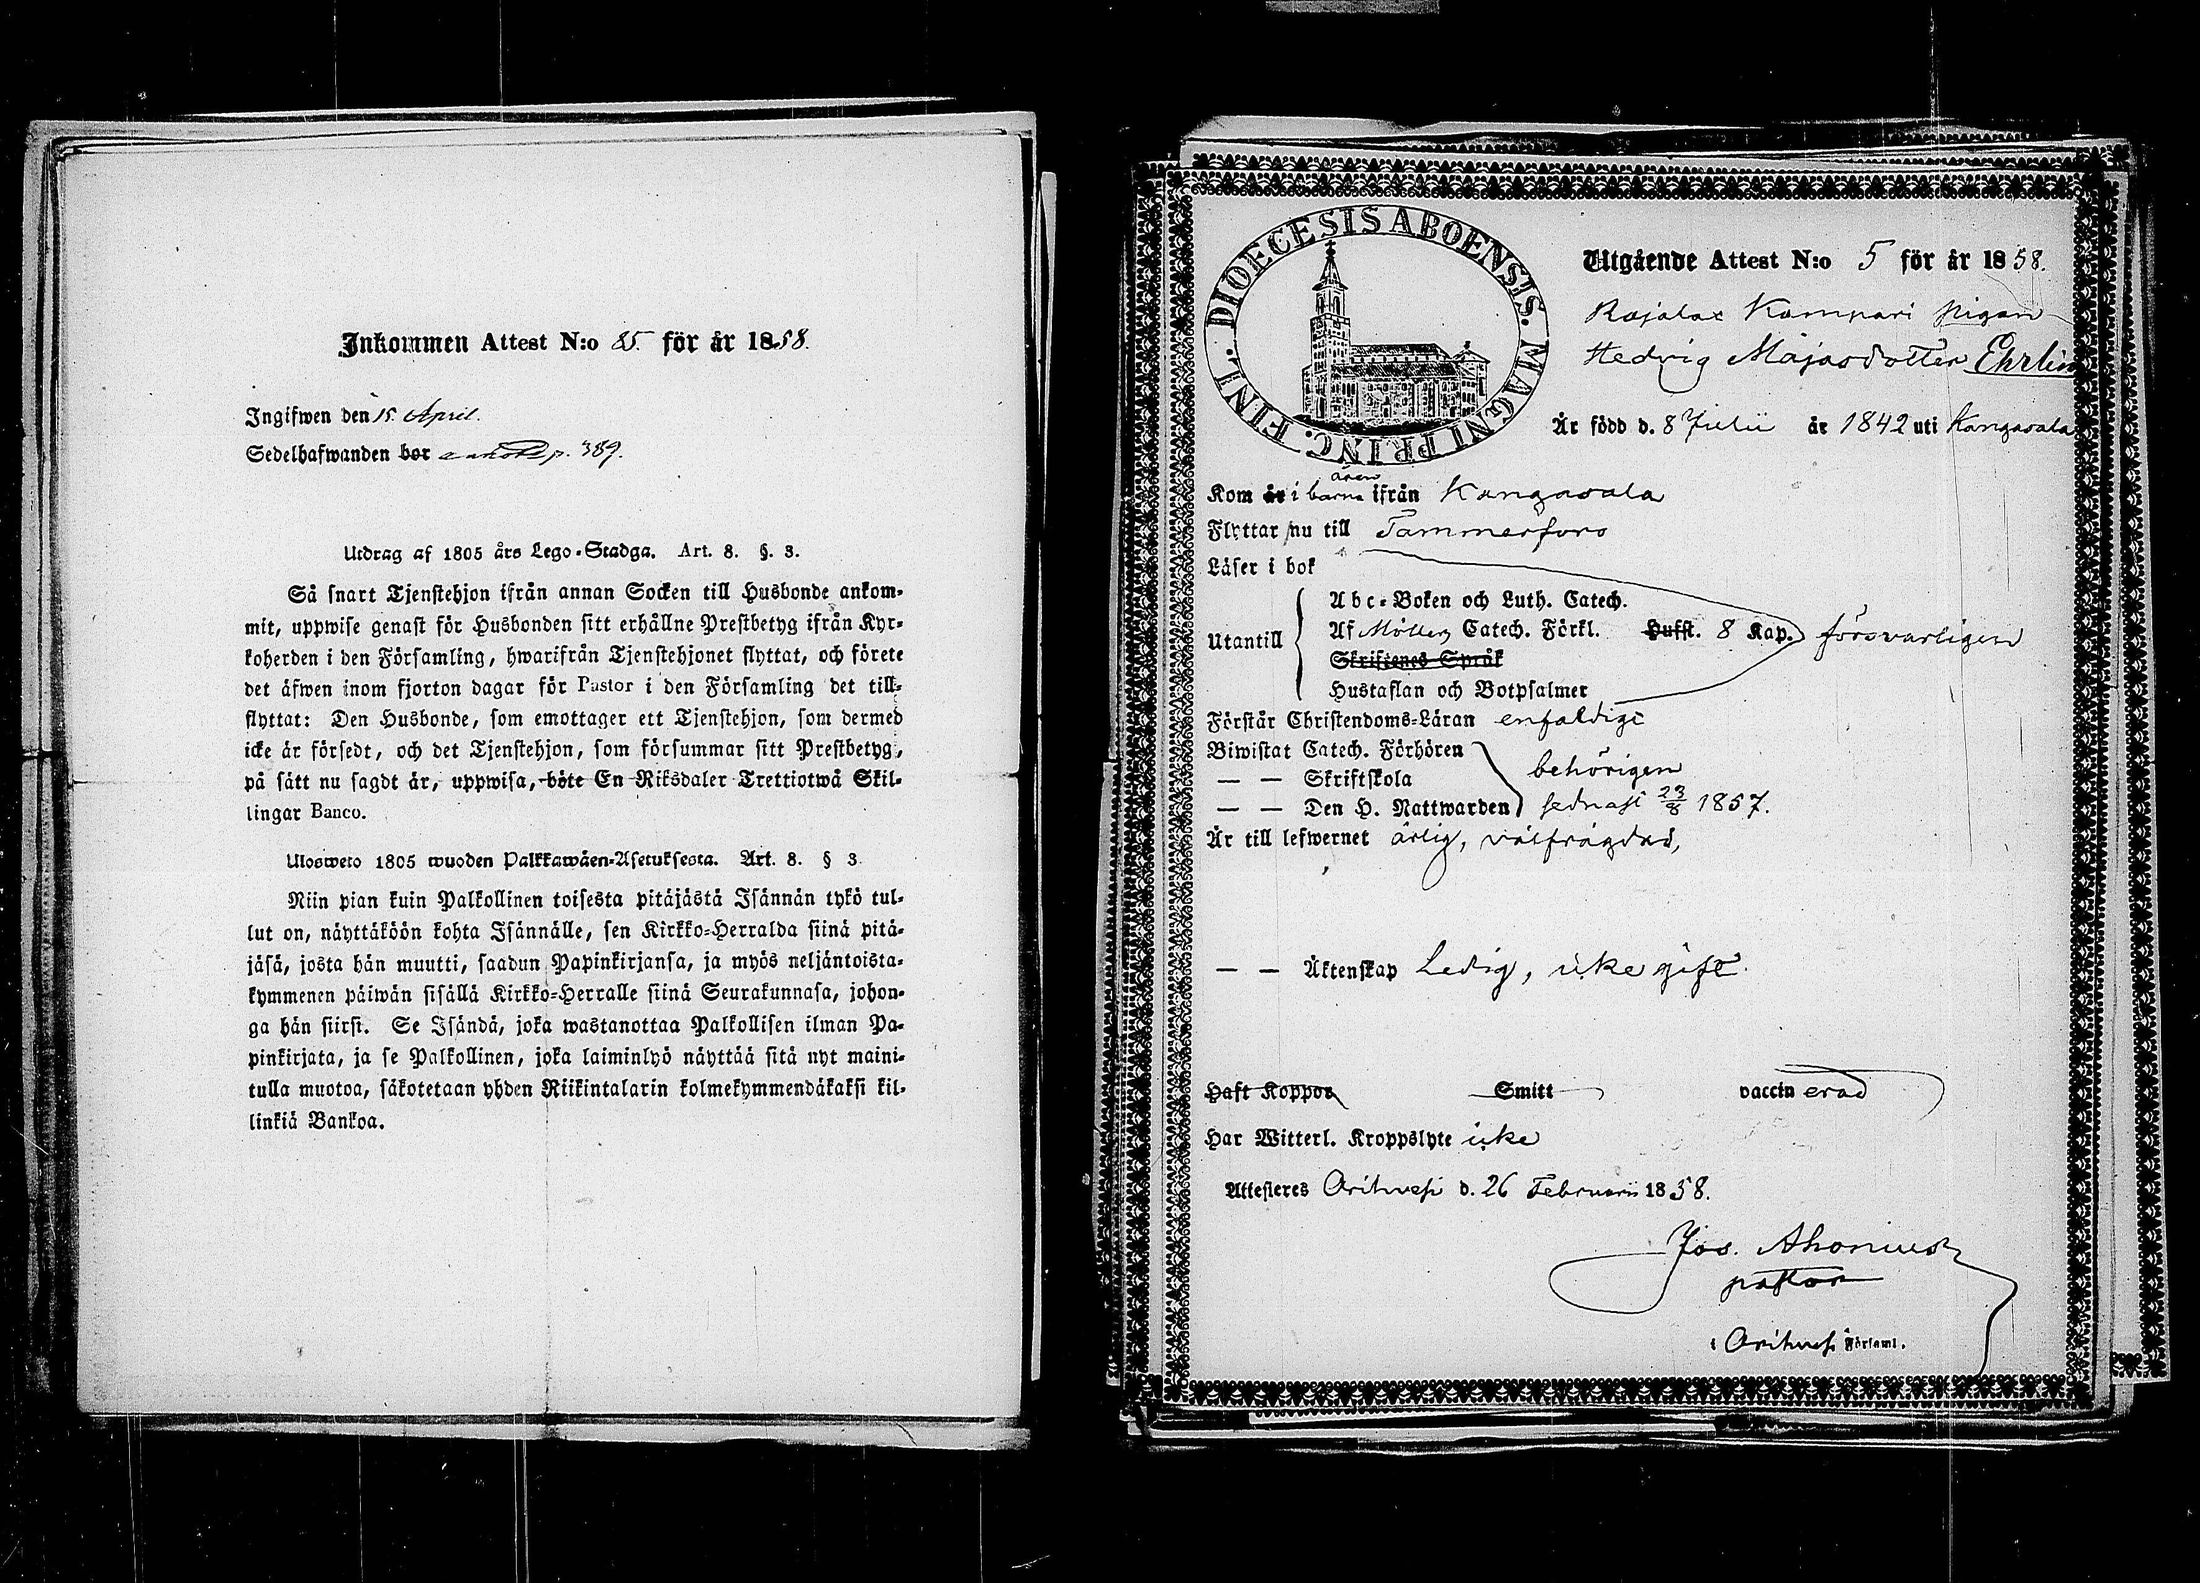 Inkommen Attest N:o 85. för år 1858.
Ingifwen den 15. April.
Sedelhafwanden bor p. 389.
Utdrag af 1805 års Lego-Stadga. Art. 8. §. 3.
Så snart Tjenstehjon ifrån annan Socken till Husbonde ankom-
mit, uppwise genast för Husbonden sitt erhållne Prestbetyg ifrån Kyr-
koherden i den Församling, hwarifrån Tjenstehjonet flyttat, och förete
det äfwen inom fjorton dagar för Pastor i den Församling det till-
flyttat: Den Husbonde, som emottager ett Tjenstehjon, som dermed
icke är försedt, och det Tjenstehjon, som försummar sitt Prestbetyg,
på sätt nu sagdt är, uppwisa, böte En Riksdaler Trettiotwå Skil-
lingar Banco.
Ulosweto 1805 wuoden Palkkawäen-Asetuksesta. Art. 8. § 3.
Niin pian kuin Palkollinen toisesta pitäjästä Isännän tykö tul-
lut on, näyttäköön kohta Isännälle, sen Kirkko-Herralda siinä pitä-
jäsä, josta hän muutti, saadun Papinkirjansa, ja myös neljäntoista-
kymmenen päiwän sisällä Kirkko-Herralle siinä Seurakunnasa, johon-
ga hän siirsi. Se Isändä, joka wastanottaa Palkollisen ilman Pa-
pinkirjata, ja se Palkollinen, joka laiminlyö näyttää sitä nyt maini-
tulla muotoa, säkotetaan yhden Riikintalarin kolmekymmendäkaksi kil-
linkiä Bankoa.
DIOECESIS ABOENSIS. MAGNI PRINC. FINL.
Utgående Attest N:o 5 för år 1858.
Rajalax Kampari pigan
Hedvig Majasdotter Ehrlin
Är född d. 8 Julii år 1842 uti Kangasala
åren
Kom år i barna ifrån Kangasala
Flyttar nu till Tammerfors
Läser i bok
Abc-Boken och Luth. Catech.
Utantill Af Möllers Catech. Förkl. Hufst. 8 Kap. försvarligen
Skriftenes Språk
Hustaflan och Botpsalmer
Förstår Christendoms-Läran enfaldigt
Biwistat Catech. Förhören
— — Skriftskola behörigen
— — Den H. Nattwarden sednast 23/8 1857.
Är till lefwernet ärlig, välfrägdad,
— — Äktenskap Ledig, icke gift.
Haft Koppor Smitt vaccinerad
Har Witterl. Kroppslyte icke
Attesteres Orihvesi d. 26 Februarii 1858.
Jos. Ahonius
pastor
i Orihvesi Församl.